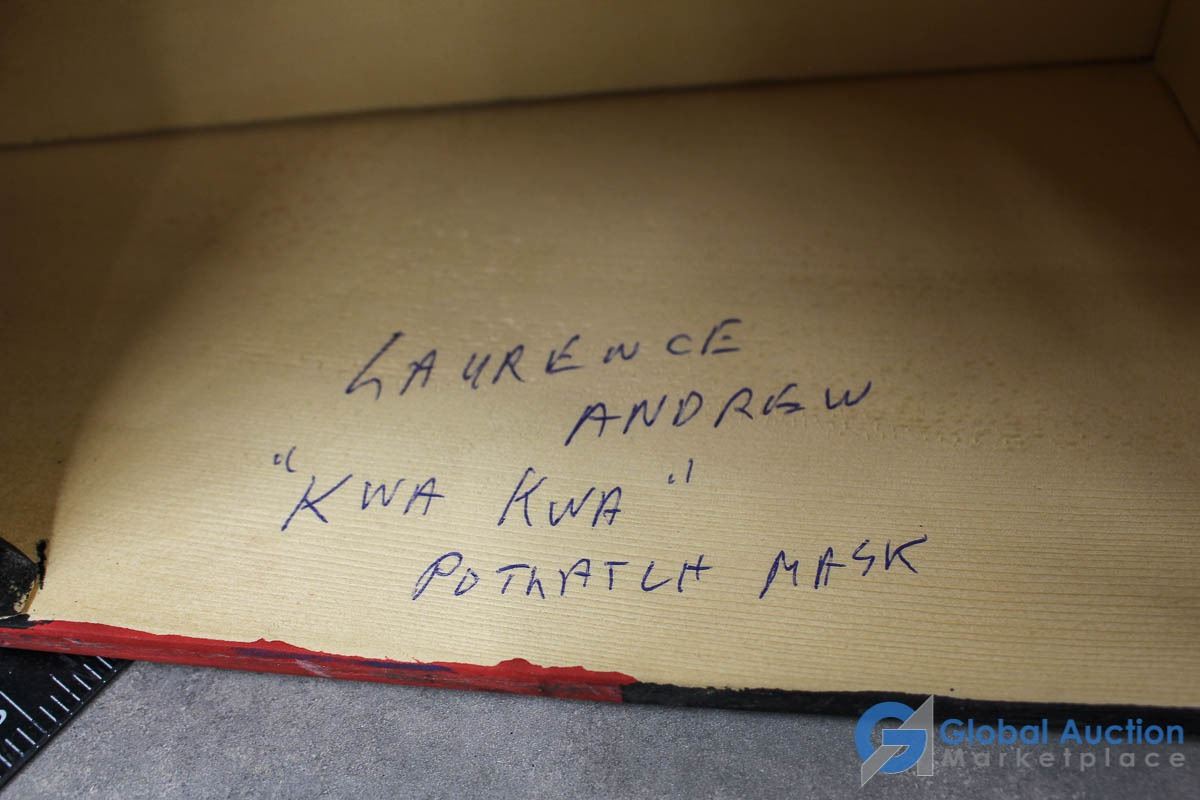 LAURENCE
ANDREW
"KWA KWA"
POTLATCH MASK
Global Auction
Marketplace